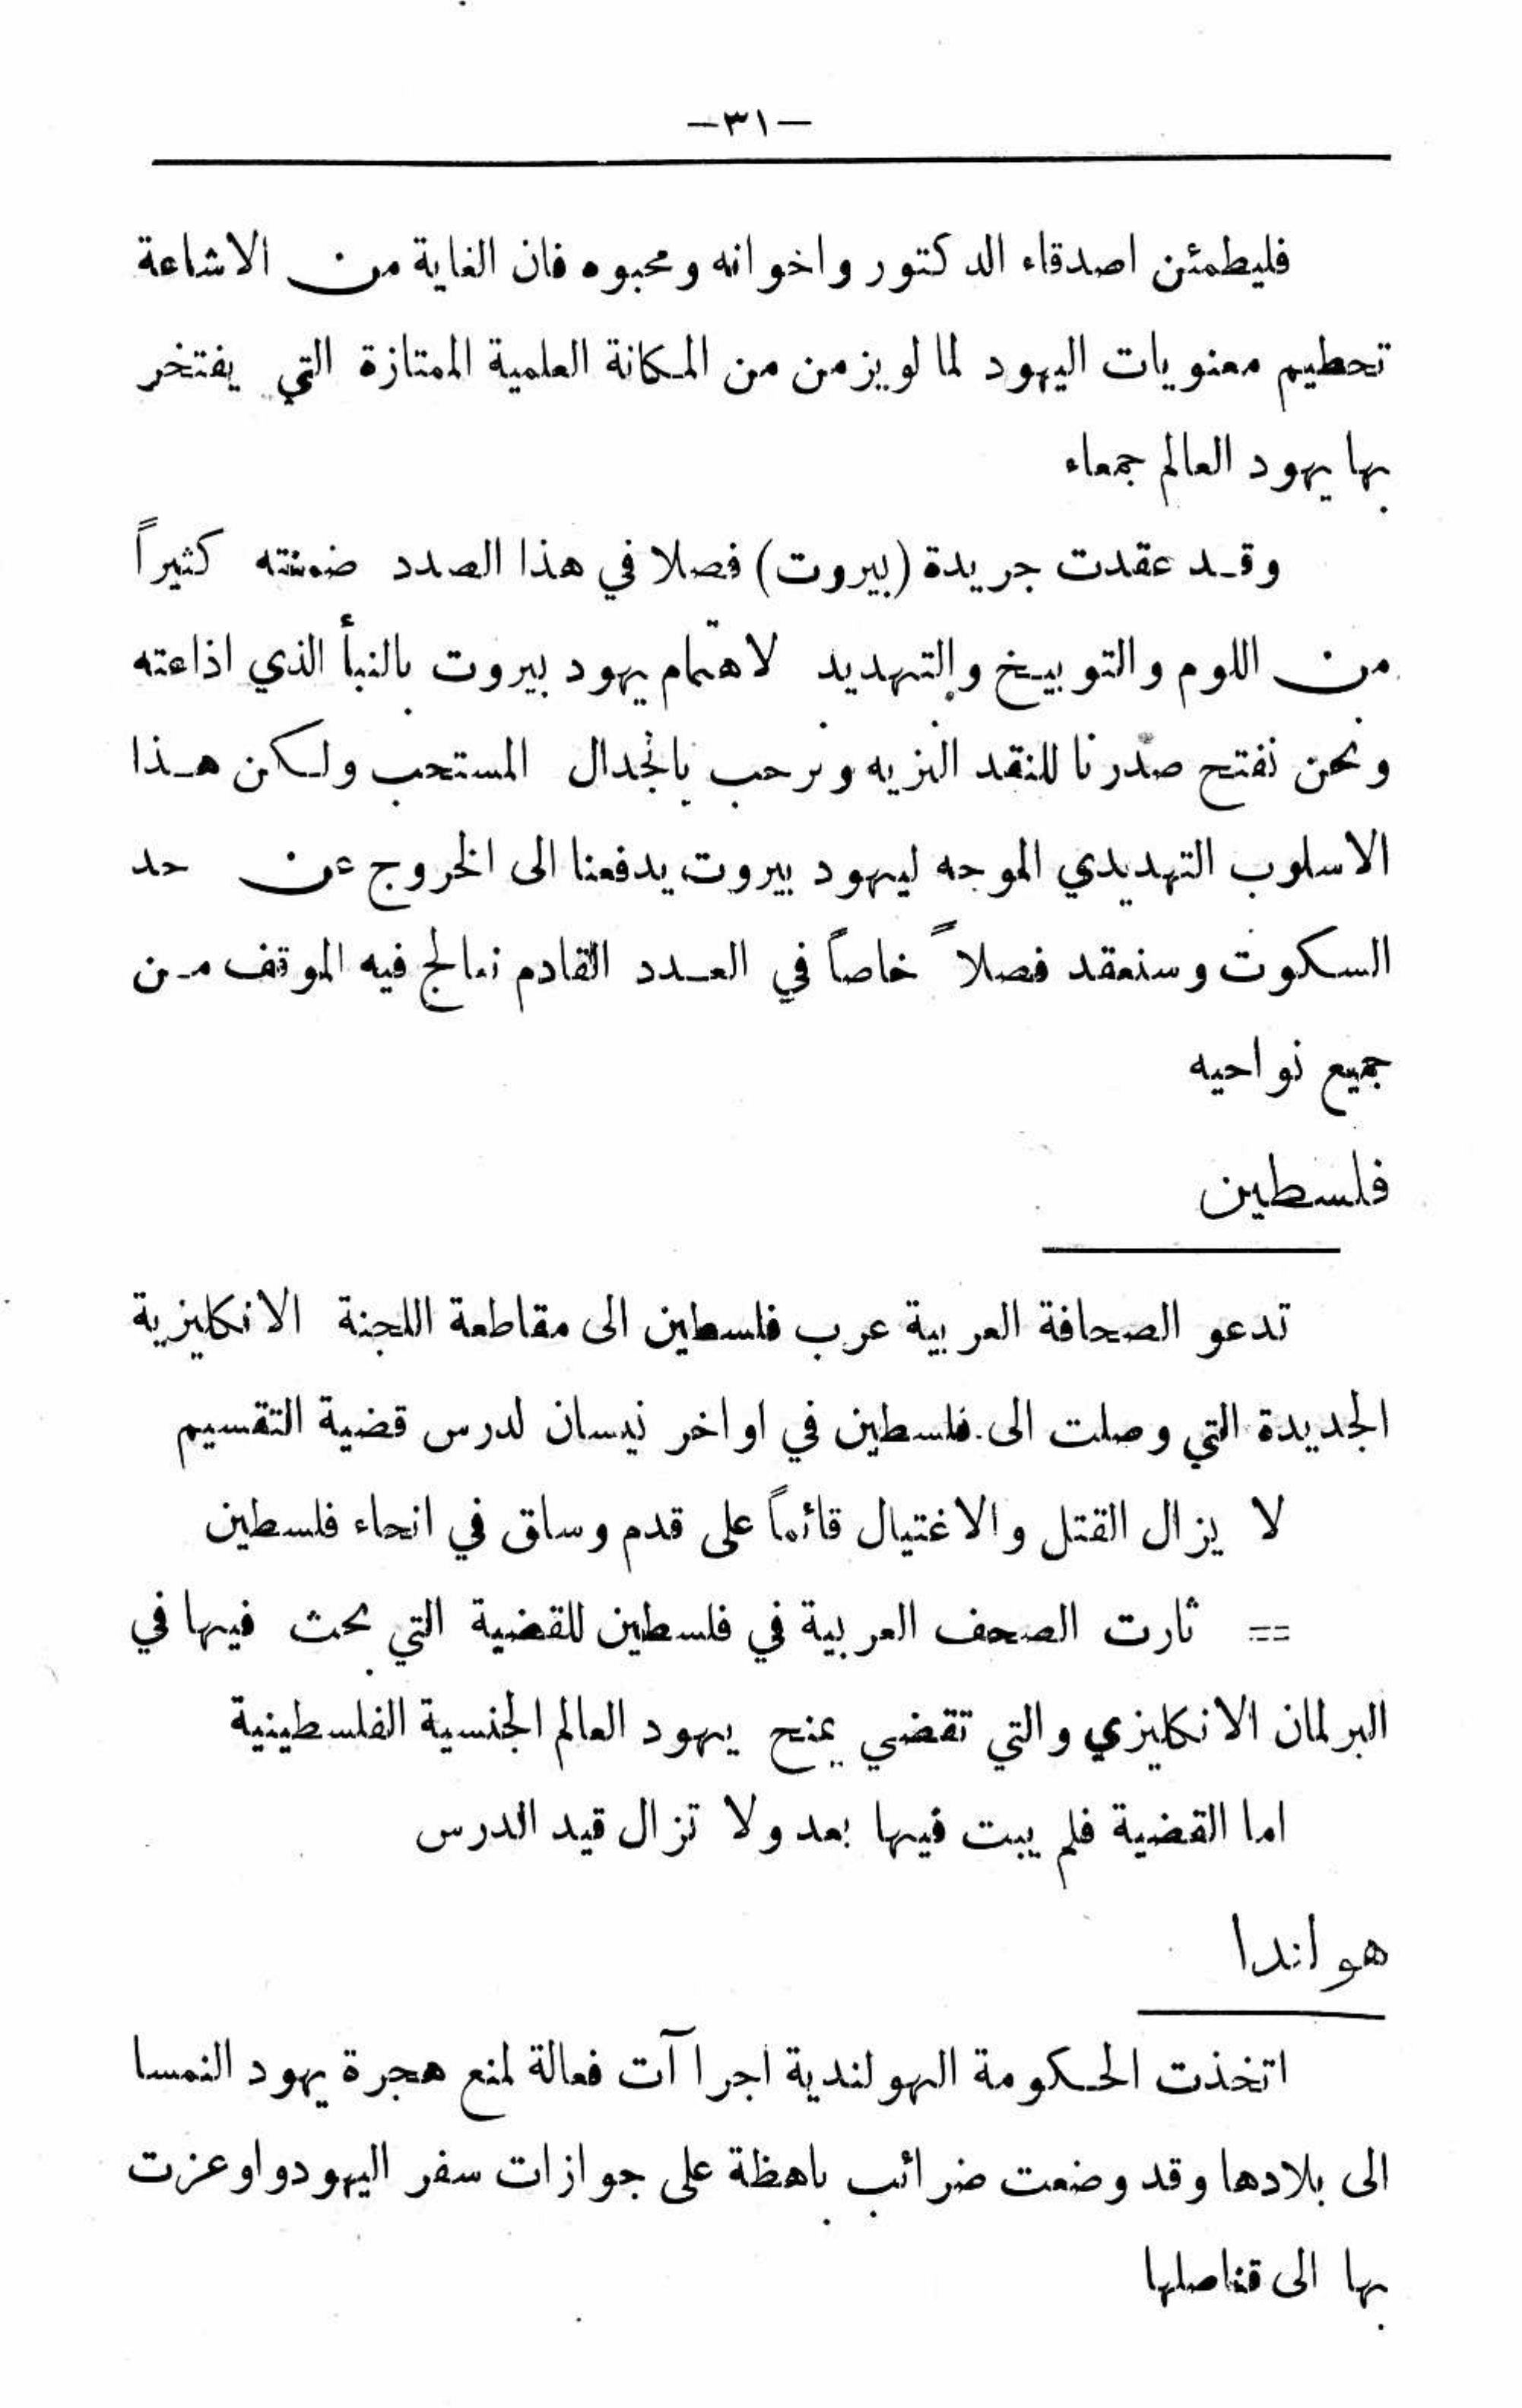 —٣١—
فليطمئن اصدقاء الدكتور واخوانه ومحبوه فان الغاية من الاشاعة
تحطيم معنويات اليهود لما لويزمن من المكانة العلمية الممتازة التي يفتخر
بها يهود العالم جمعاء
وقد عقدت جريدة (بيروت) فصلا في هذا الصدد ضمنته كثيراً
من اللوم والتوبيخ والتهديد لاهتمام يهود بيروت بالنبأ الذي اذاعته
ونحن نفتح صدرنا للنقد النزيه ونرحب بالجدال المستحب ولكن هذا
الاسلوب التهديدي الموجه ليهود بيروت يدفعنا الى الخروج عن حد
السكوت وسنعقد فصلاً خاصاً في العدد القادم نعالج فيه الموقف من
جميع نواحيه
فلسطين
تدعو الصحافة العربية عرب فلسطين الى مقاطعة اللجنة الانكليزية
الجديدة التي وصلت الى فلسطين في اواخر نيسان لدرس قضية التقسيم
لا يزال القتل والاغتيال قائماً على قدم وساق في انحاء فلسطين
== ثارت الصحف العربية في فلسطين للقضية التي بحث فيها في
البرلمان الانكليزي والتي تقضي بمنح يهود العالم الجنسية الفلسطينية
اما القضية فلم يبت فيها بعد ولا تزال قيد الدرس
هولندا
اتخذت الحكومة الهولندية اجراآت فعالة لمنع هجرة يهود النمسا
الى بلادها وقد وضعت ضرائب باهظة على جوازات سفر اليهود واوعزت
بها الى قناصلها